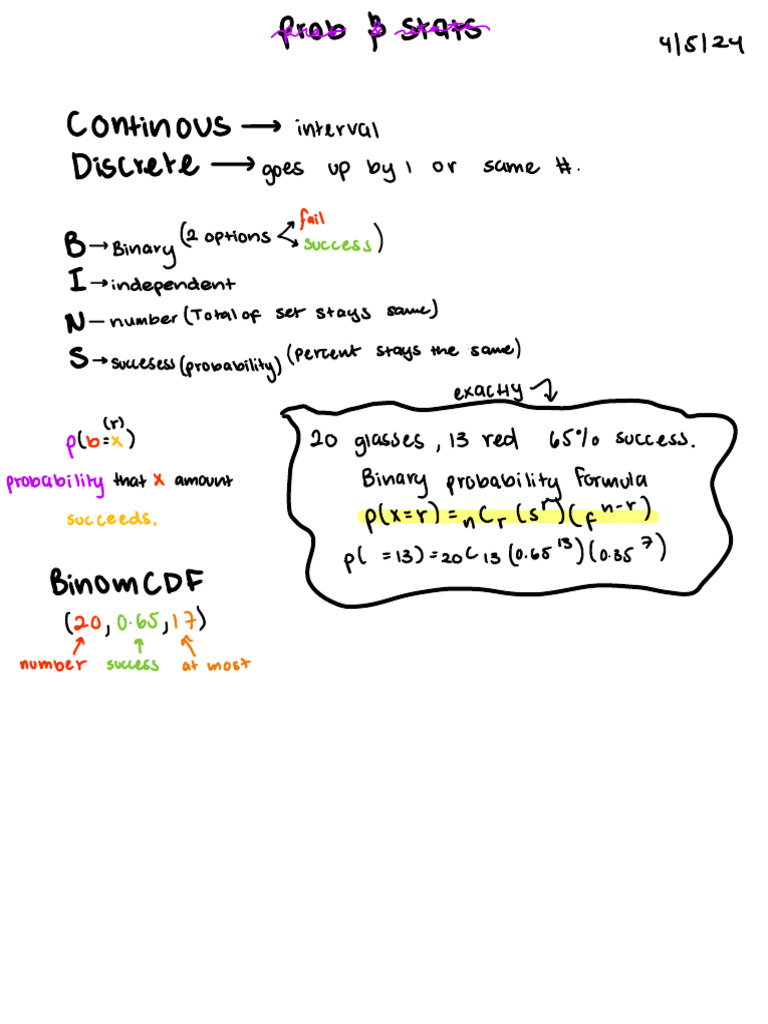 Prob & stats
4/5/24
Continous → interval
Discrete → goes up by 1 or same #.
B → Binary (2 options fail success)
I → independent
N – number (Total of set stays same)
S → succesess (probability) (percent stays the same)
exactly
(r)
p(b=x)
probability that x amount
succeeds.
20 glasses, 13 red 65% success.
Binary probability formula
p(x=r) = nCr (s^r)(f^n-r)
p( =13) = 20C13 (0.65^13)(0.35^7)
BinomCDF
(20, 0.65, 17)
number success at most